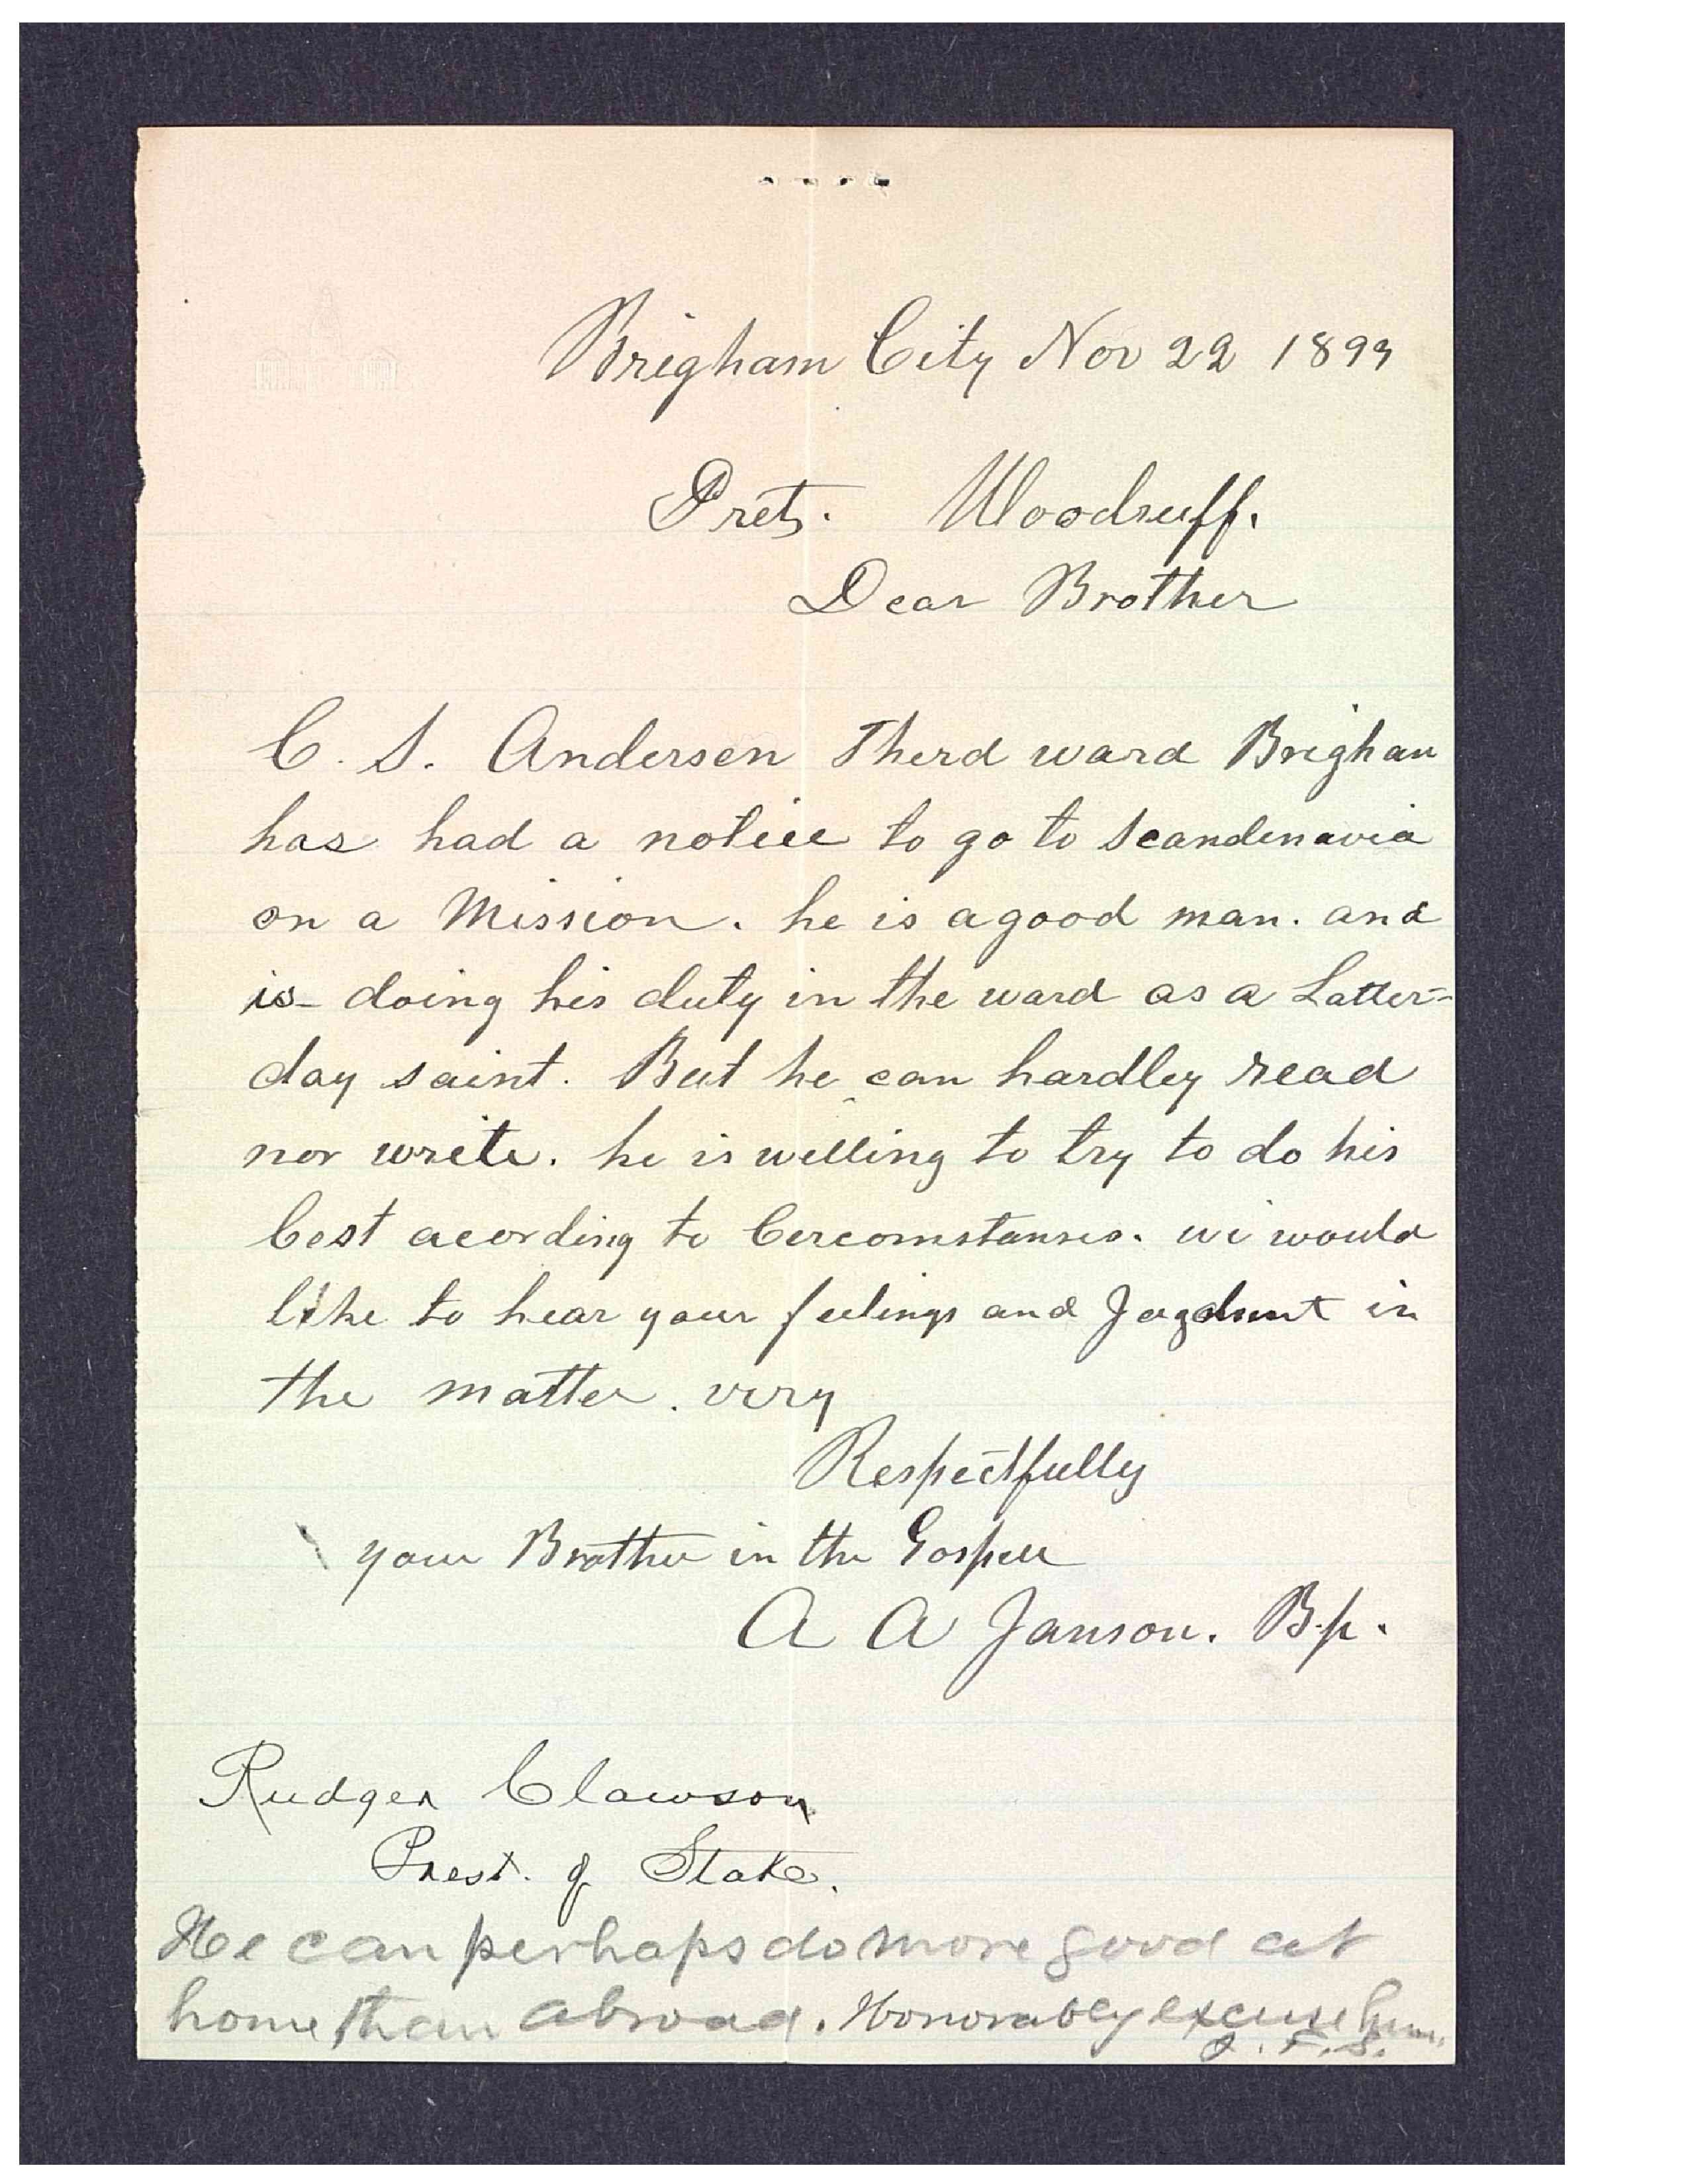 Brigham City Nov 22 1899
Prets. Woodruff.
Dear Brother
C. S. Andersen Therd ward Brigham
has had a notice to go to Scandenavia
on a Mission. he is a good man. and
is doing his duty in the ward as a Latter-
day saint. But he can hardley read
nor write. he is willing to try to do his
best acording to Cercomstanses. wi would
like to hear your feelings and Jugdment in
the matter. very
Respectfully
your Brother in the Gospell
A A Janson. Bp.
Rudger Clawson
Prest. of Stake.
He can perhaps do more good at
home than abroad. Honorably excuse him.
J. F. S.